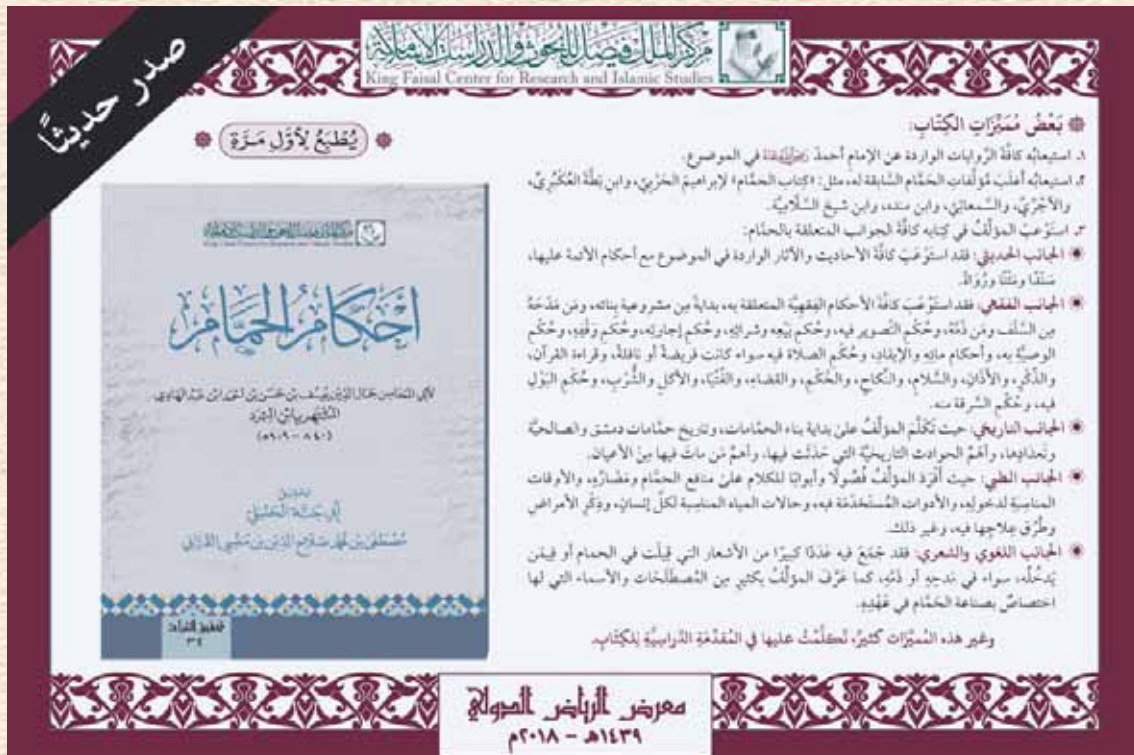 صدر حديثًا
مركز الملك فيصل للبحوث والدراسات الإسلامية
King Faisal Center for Research and Islamic Studies
بَعْضُ مُمَيِّزَاتِ الكِتَابِ:
١. استيعابُه كافَّةَ الرِّوايات الواردة عن الإمام أحمدَ في الموضوع.
٢. استيعابُه أغلَبَ مُؤلَّفاتِ الحَمَّام السَّابقة له، مثل: «كِتاب الحمَّام» لإبراهيمَ الحَرْبِيِّ، وابن بَطَّةَ العُكْبُرِيِّ،
والآجُرِّيِّ، والسَّمعانِيِّ، وابن منده، وابن شيخ السَّلَّاميَّة.
٣. استَوْعبَ المؤلِّفُ في كتابِه كافَّةَ الجوانب المتعلقة بالحمَّام:
الجانب الحديثي: فقد استَوْعَبَ كافَّةَ الأحاديث والآثار الواردة في الموضوع مع أحكام الأئمة عليها،
سَنَدًا ومَتْنًا ورُوَاةً.
الجانب الفقهي: فقد استَوْعَبَ كافَّةَ الأحكام الفِقهيَّة المتعلقة به، بدايةً مِن مشروعية بنائه، ومَن مَدَحَهُ
مِن السَّلَف ومَن ذَمَّهُ، وحُكْمِ التَّصوير فيه، وحُكْمِ بَيْعِه وشرائِه، وحُكْمِ إجارتِه، وحُكْمِ وَقْفِه، وحُكْمِ
الوصيَّةِ به، وأحكامِ مائِه والإيقادِ، وحُكْمِ الصلاة فيه سواء كانت فريضةً أو نافلةً، وقراءة القرآن،
والذِّكْرِ، والأذَانِ، والسَّلام، والنِّكاحِ، والحُكْمِ، والقضاءِ، والفُتْيَا، والأكلِ والشُّرْبِ، وحُكْمِ البَوْلِ
فيه، وحُكْمِ السَّرقة منه.
الجانب التاريخي: حيث تَكَلَّمَ المؤلِّفُ على بداية بناء الحمَّامات، وتاريخِ حمَّامات دمشق والصالحيَّة
وتَعدادِها، وأهَمِّ الحوادث التاريخيَّة التي حَدَثَت فيها، وأهمِّ مَن ماتَ فيها مِنَ الأعيان.
الجانب الطبي: حيث أَفْرَدَ المؤلِّفُ فُصُولًا وأبوابًا للكلام على منافع الحمَّام ومَضَارِّه، والأوقات
المناسِبَةِ لدخولِه، والأدوات المُستَخدَمَة فيه، وحالات المياه المناسِبة لكلِّ إنسانٍ، وذِكْرِ الأمراض
وطُرُقِ عِلاجِها فيه، وغير ذلك.
الجانب اللغوي والشعري: فقد جَمَعَ فيه عَدَدًا كبيرًا من الأشعار التي قِيلَت في الحمام أو فيمَن
يَدخُلُه، سواء في مَدحِه أو ذَمِّه، كما عَرَّفَ المؤلِّفُ بكثيرٍ مِن المُصطَلَحَات والأسماء التي لها
اختصاصٌ بصناعة الحَمَّام في عَهْدِهِ.
وغير هذه المُمَيِّزَات كثيرٌ، تَكلَّمْتُ عليها في المُقَدِّمَةِ الدِّراسيَّةِ لِلكِتَابِ.
يُطْبَعُ لِأَوَّلِ مَرَّةٍ
مركز الملك فيصل للبحوث والدراسات الإسلامية
أحكام الحمام
لأبي المحاسن جمال الدين يوسف بن حسن بن أحمد ابن عبد الهادي
المشتهر بابن المبرد
(٨٤٠ - ٩٠٩هـ)
تحقيق
أبي جنة الحنبلي
مصطفى بن محمد صلاح الدين بن منسي القباني
تحقيق التراث
٣٤
معرض الرياض الدولي
١٤٣٩هـ - ٢٠١٨م